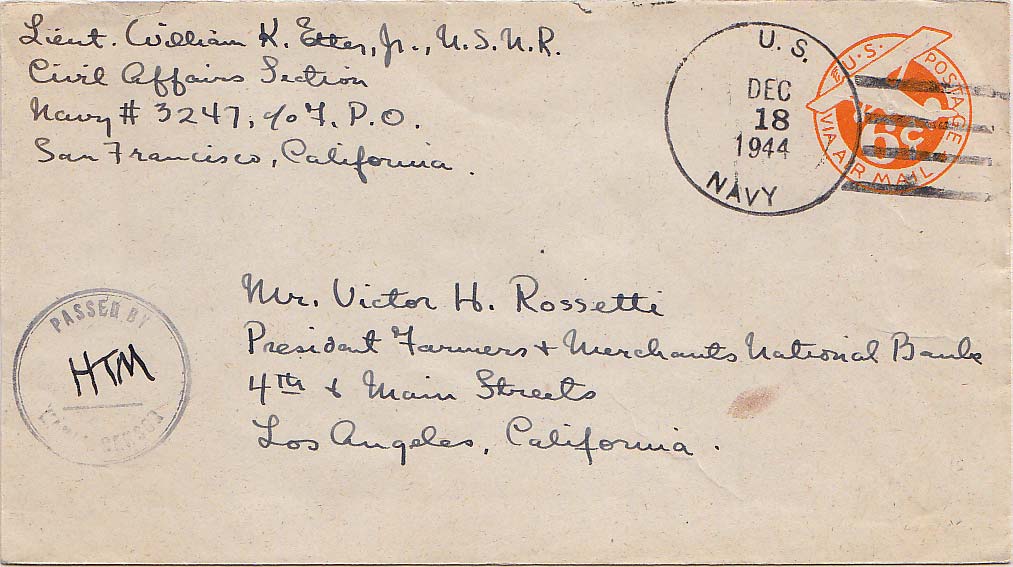 Lieut. William K. Etter, Jr., U.S.N.R.
Civil Affairs Section
Navy # 3247, c/o F.P.O.
San Francisco, California.
U.S.
DEC
18
1944
NAVY
U.S. POSTAGE
6¢
VIA AIR MAIL
Mr. Victor H. Rossetti
President Farmers + Merchants National Bank
4th & Main Streets
Los Angeles, California.
PASSED BY
HTM
NAVAL CENSOR